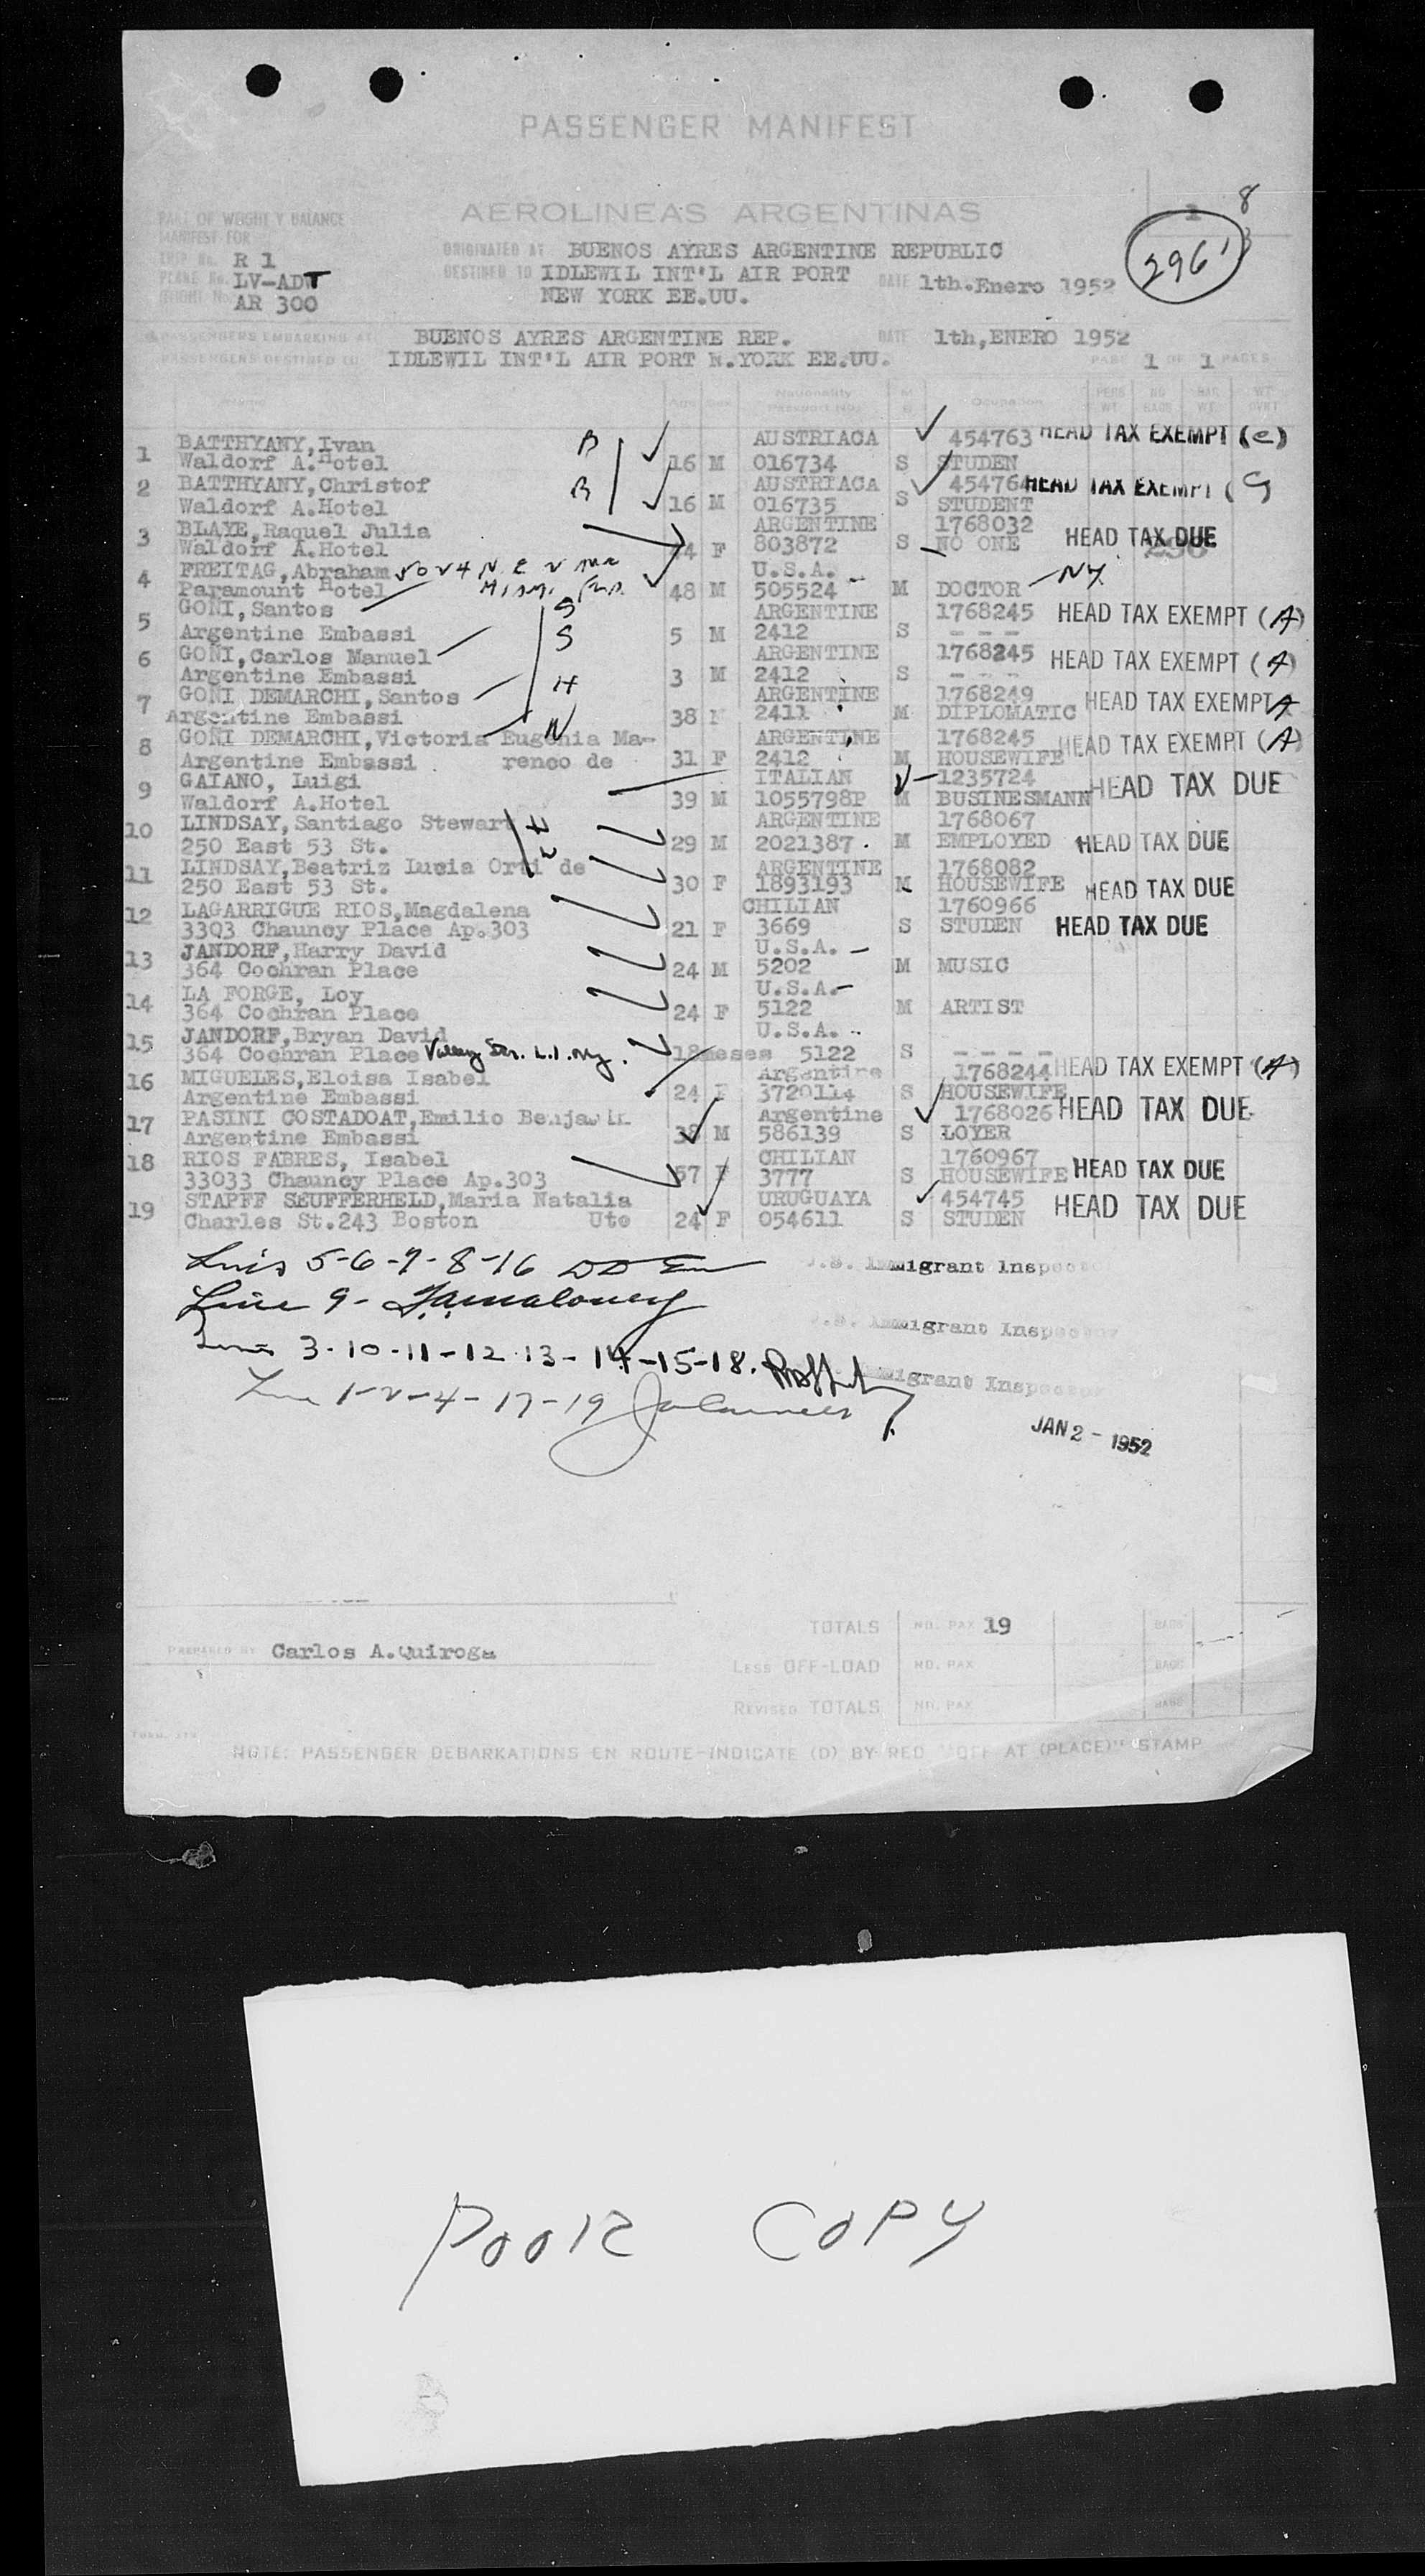 PASSENGER MANIFEST
8
PART OF WEIGHT Y BALANCE
MANIFEST FOR
AEROLINEAS ARGENTINAS
1
2961
TRIP No. R 1
PLANE No. LV-ADT
FLIGHT No. AR 300
ORIGINATED AT BUENOS AYRES ARGENTINE REPUBLIC
DESTINED TO IDLEWIL INT'L AIR PORT DATE 1th.Enero 1952
NEW YORK EE.UU.
PASSENGERS EMBARKING AT BUENOS AYRES ARGENTINE REP. DATE 1th,ENERO 1952
PASSENGERS DESTINED TO IDLEWIL INT'L AIR PORT N.YORK EE.UU. PAGE 1 OF 1 PAGES
Name Age Sex Nationality Passport No. M S Ocupation PERS WT. NO BAGS BAG WT. WT OVRT
1 BATTHYANY,Ivan B AUSTRIACA 454763 HEAD TAX EXEMPT (e)
Waldorf A.Hotel 16 M 016734 S STUDEN
2 BATTHYANY,Christof B AUSTRIACA 454764 HEAD TAX EXEMPT (
Waldorf A.Hotel 16 M 016735 S STUDENT
3 BLAYE,Raquel Julia ARGENTINE 1768032 HEAD TAX DUE
Waldorf A.Hotel F 803872 S NO ONE
4 FREITAG,Abraham U.S.A. NY
Paramount Hotel 48 M 505524 M DOCTOR
5 GOÑI,Santos S ARGENTINE 1768245 HEAD TAX EXEMPT (A)
Argentine Embassi 5 M 2412 S - - -
6 GOÑI,Carlos Manuel S ARGENTINE 1768245 HEAD TAX EXEMPT (A)
Argentine Embassi 3 M 2412 S - - -
7 GOÑI DEMARCHI,Santos H ARGENTINE 1768249 HEAD TAX EXEMPT A
Argentine Embassi 38 M 2411 M DIPLOMATIC
8 GOÑI DEMARCHI,Victoria Eugenia Ma- ARGENTINE 1768245 HEAD TAX EXEMPT (A)
Argentine Embassi renco de 31 F 2412 M HOUSEWIFE
9 GAIANO, Luigi ITALIAN 1235724 HEAD TAX DUE
Waldorf A.Hotel 39 M 1055798P M BUSINESMANN
10 LINDSAY,Santiago Stewart ARGENTINE 1768067
250 East 53 St. 29 M 2021387. M EMPLOYED HEAD TAX DUE
11 LINDSAY,Beatriz Lucia Orti de ARGENTINE 1768082
250 East 53 St. 30 F 1893193 M HOUSEWIFE HEAD TAX DUE
12 LAGARRIGUE RIOS,Magdalena CHILIAN 1760966
3303 Chauncy Place Ap.303 21 F 3669 S STUDEN HEAD TAX DUE
13 JANDORF,Harry David U.S.A.
364 Cochran Place 24 M 5202 M MUSIC
14 LA FORGE, Loy U.S.A.
364 Cochran Place 24 F 5122 M ARTIST
15 JANDORF,Bryan David U.S.A.
364 Cochran Place Valley Str. L.I. Ny. 18meses 5122 S - - - -
16 MIGUELES,Eloisa Isabel Argentine 1768244 HEAD TAX EXEMPT (A)
Argentine Embassi 24 F 3720114 S HOUSEWIFE
17 PASINI COSTADOAT,Emilio Benjamin Argentine 1768026 HEAD TAX DUE
Argentine Embassi 38 M 586139 S LOYER
18 RIOS FABRES, Isabel CHILIAN 1760967 HEAD TAX DUE
33033 Chauncy Place Ap.303 57 F 3777 S HOUSEWIFE
19 STAPFF SEUFFERHELD,Maria Natalia URUGUAYA 454745 HEAD TAX DUE
Charles St.243 Boston Ute 24 F 054611 S STUDEN
5-6-7-8-16 U.S. Immigrant Inspector
Line 9- U.S. Immigrant Inspector
Lines 3-10-11-12-13-14-15-18. Immigrant Inspector
Line 1-2-4-17-19
JAN 2 - 1952
TOTALS NO. PAX 19 BAGS
PREPARED BY Carlos A.Quiroga
LESS OFF-LOAD NO. PAX BAGS
REVISED TOTALS NO. PAX BAGS
NOTE: PASSENGER DEBARKATIONS EN ROUTE-INDICATE (D) BY RED "OFF AT (PLACE)" STAMP
POOR COPY